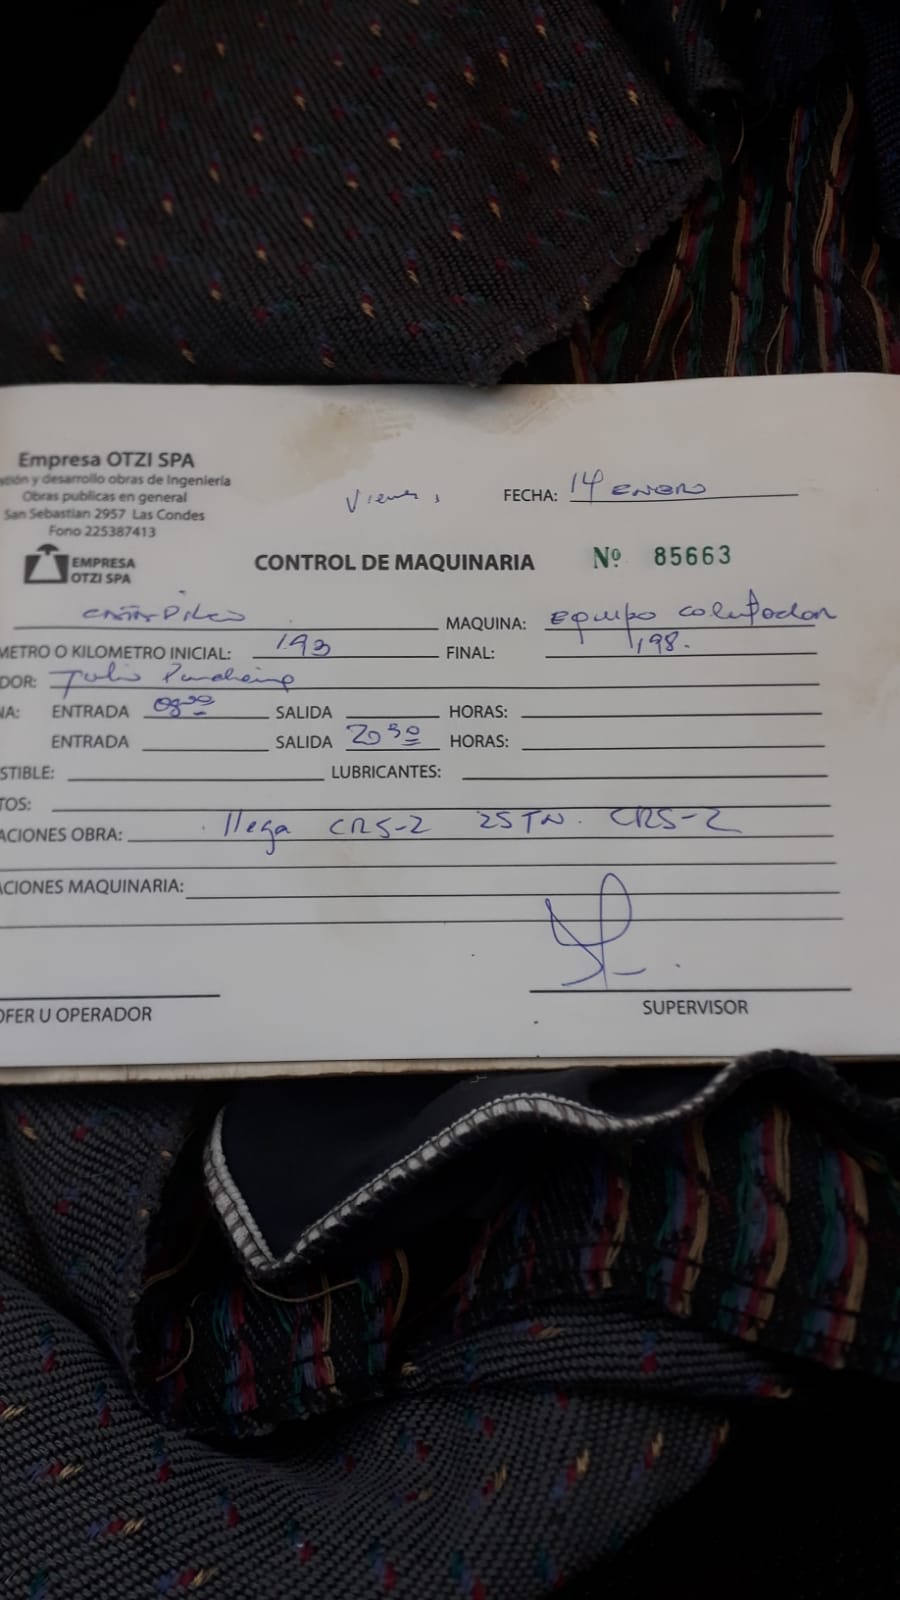 Empresa OTZI SPA
ión y desarrollo obras de Ingeniería
Obras publicas en general
San Sebastian 2957 Las Condes
Fono 225387413
Viernes
FECHA: 14 ENERO
EMPRESA
OTZI SPA
CONTROL DE MAQUINARIA
Nº 85663
MAQUINA: equipo calefactor
METRO O KILOMETRO INICIAL: 193 FINAL: 198.
DOR: Julio
NA: ENTRADA 08:00 SALIDA HORAS:
ENTRADA SALIDA 20 30 HORAS:
STIBLE: LUBRICANTES:
TOS:
ACIONES OBRA: llega CRS-2 25 TN. CRS-2
ACIONES MAQUINARIA:
OFER U OPERADOR
SUPERVISOR